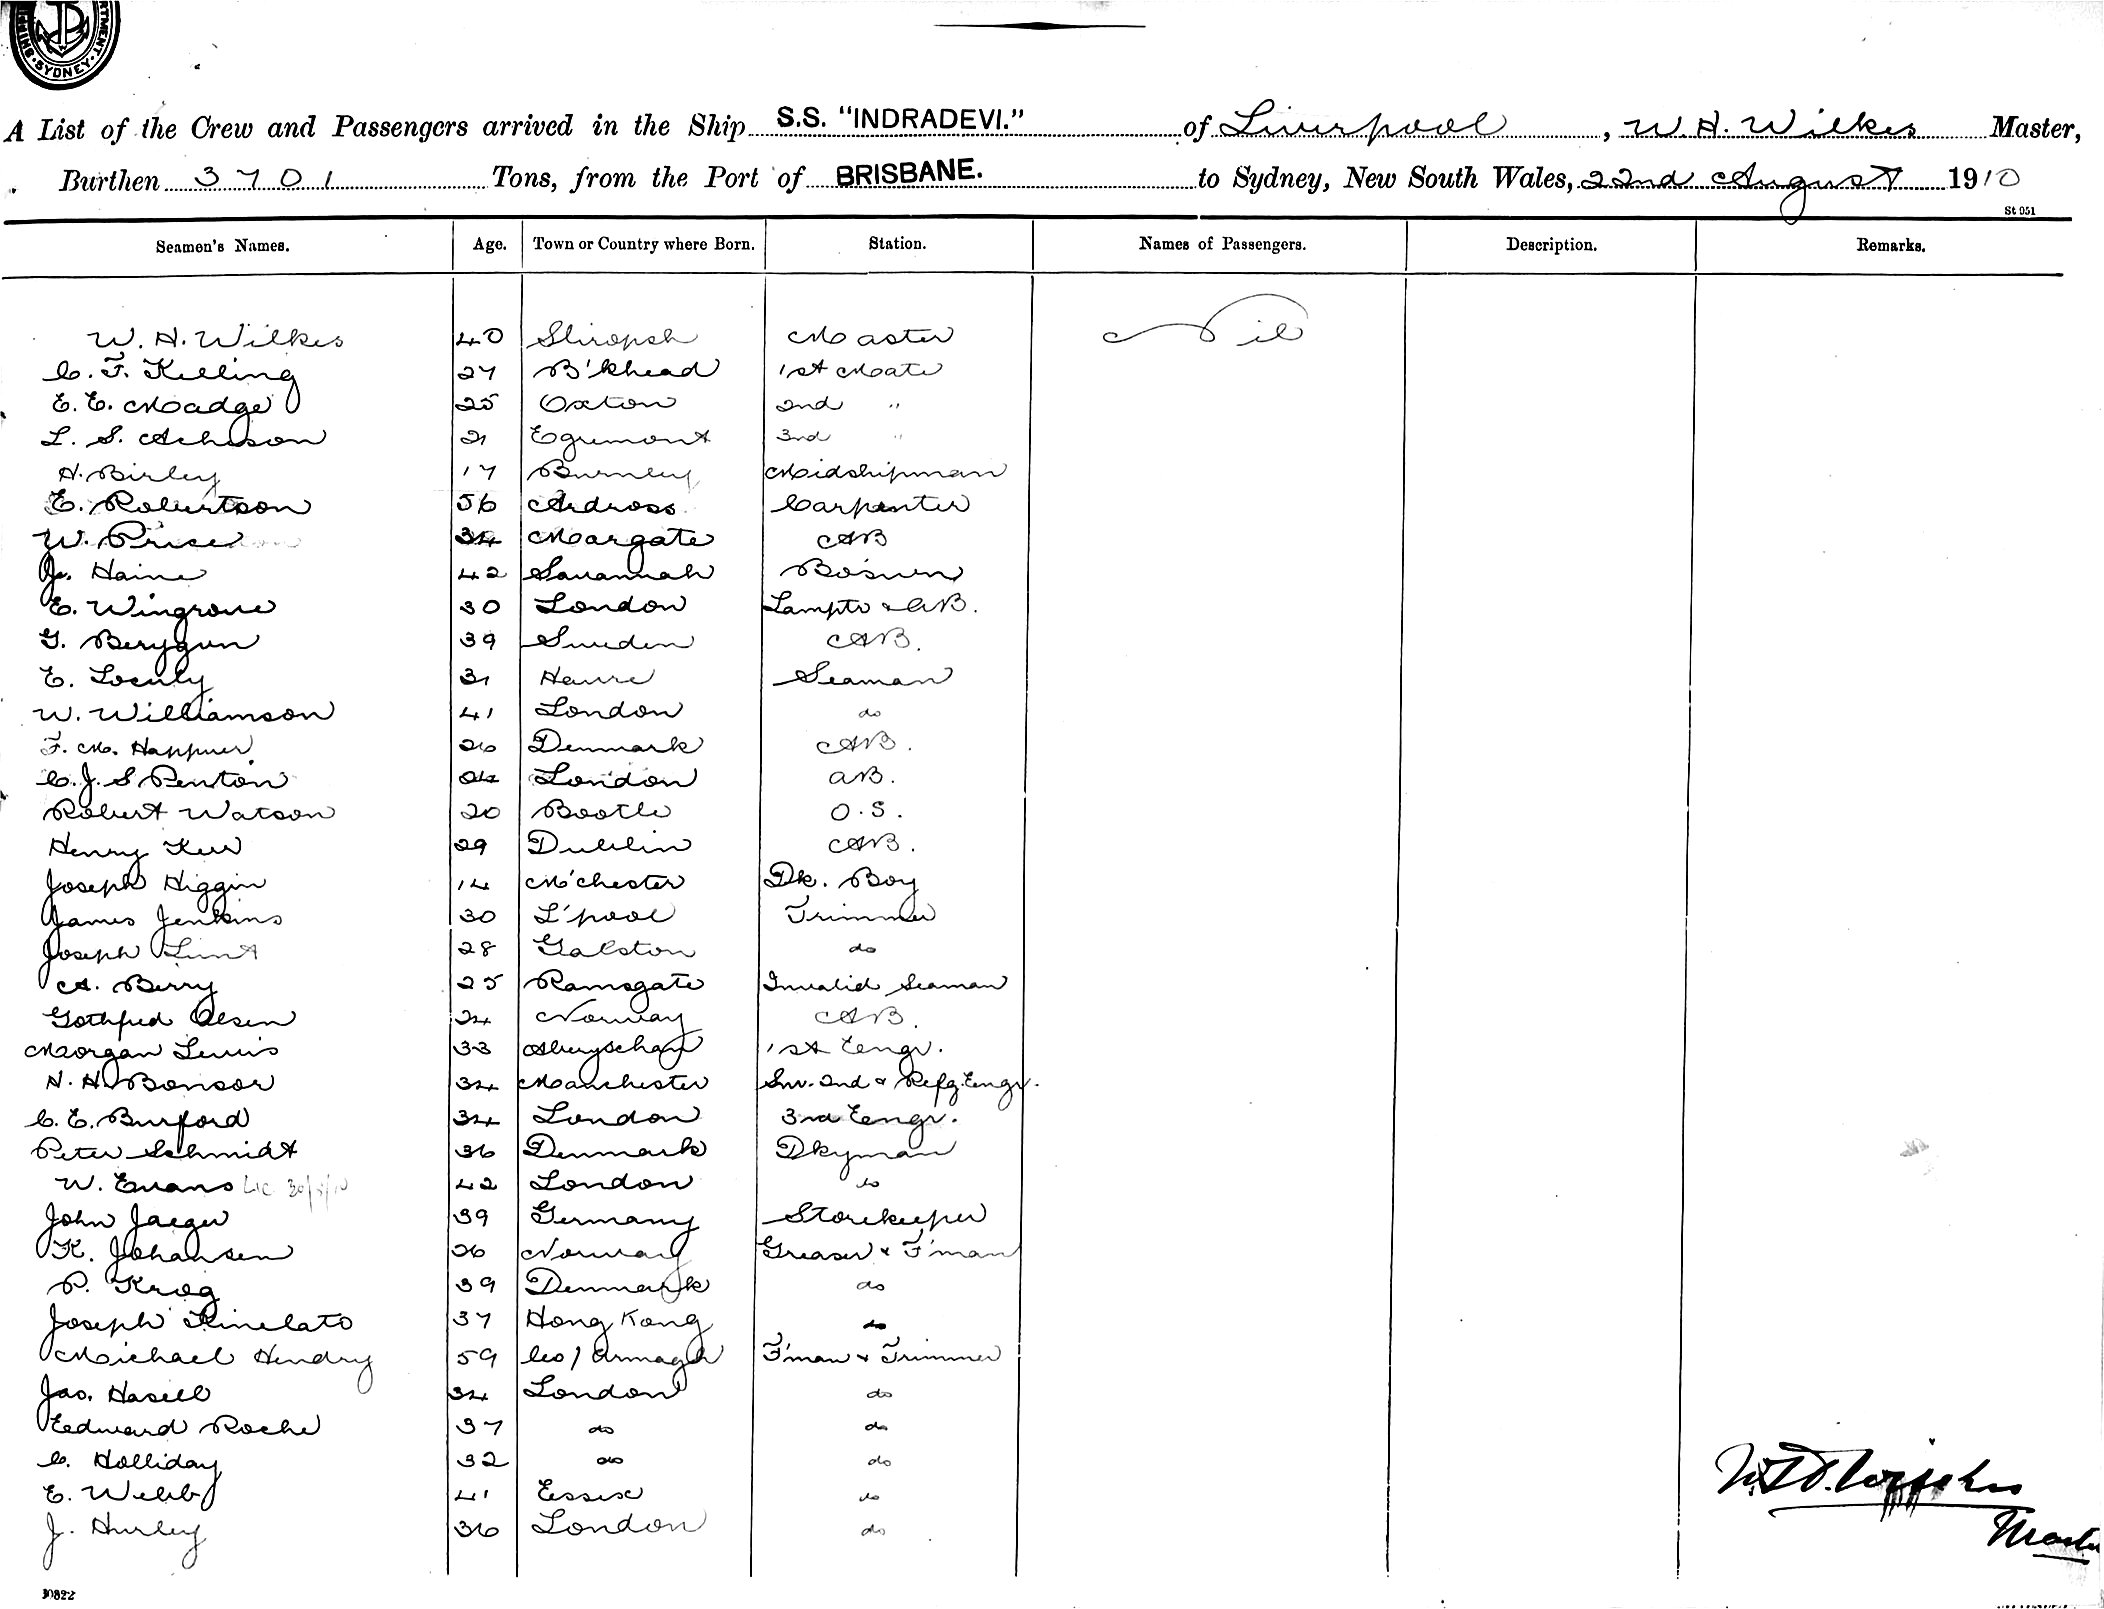 SHIPPING DEPARTMENT. SYDNEY.
A List of the Crew and Passengers arrived in the Ship S.S. "INDRADEVI." of Liverpool, W. H. Wilkes Master,
Burthen 3701 Tons, from the Port of BRISBANE. to Sydney, New South Wales, 22nd August 1910
St 951
Seamen's Names. Age. Town or Country where Born. Station. Names of Passengers. Description. Remarks.
W. H. Wilkes 40 Shropsh Master Nil
C. F. Kelling 27 B'khead 1st Mate
E. E. Madge 25 Oxton 2nd "
L. S. Acheson 21 Egremont 3rd "
H. Birley 17 Burnley Midshipman
E. Robertson 56 Ardross Carpenter
W. Price 34 Margate AB
J. Haine 42 Savannah Bo'sun
E. Wingrove 30 London Lamptr & AB.
G. Berygun 39 Sweden AB.
E. 31 Havre Seaman
W. Williamson 41 London do
F. M. Happner 26 Denmark AB.
C. J. S Penton London AB.
Robert Watson 20 Bootle O.S.
Henry Kerr 29 Dublin AB.
Joseph Higgin 14 M'chester Dk. Boy
James Jenkins 30 L'pool Trimmer
Joseph Lunt 28 Galston do
A. Berry 25 Ramsgate Invalid Seaman
Gothfred Olsen 24 Norway AB.
Morgan Lewis 33 Abersychan 1st Engr.
H. H. Bonsor 34 Manchester Snr. 2nd & Refg. Engr.
C. E. Burford 34 London 3rd Engr.
Peter Schmidt 36 Denmark Dkyman
W. Evans 42 London do
John Jaeger 39 Germany Storekeeper
K. Johansen 26 Norway Greaser & F'man
P. Krog 39 Denmark do
Joseph 37 Hong Kong do
Michael Hendry 59 Co/ Armagh F'man & Trimmer
Jas. Hasell 34 London do
Edward Roche 37 do do
C. Holliday 32 do do
E. Webb 41 Essex do
J. Hurley 36 London do
Master
30822